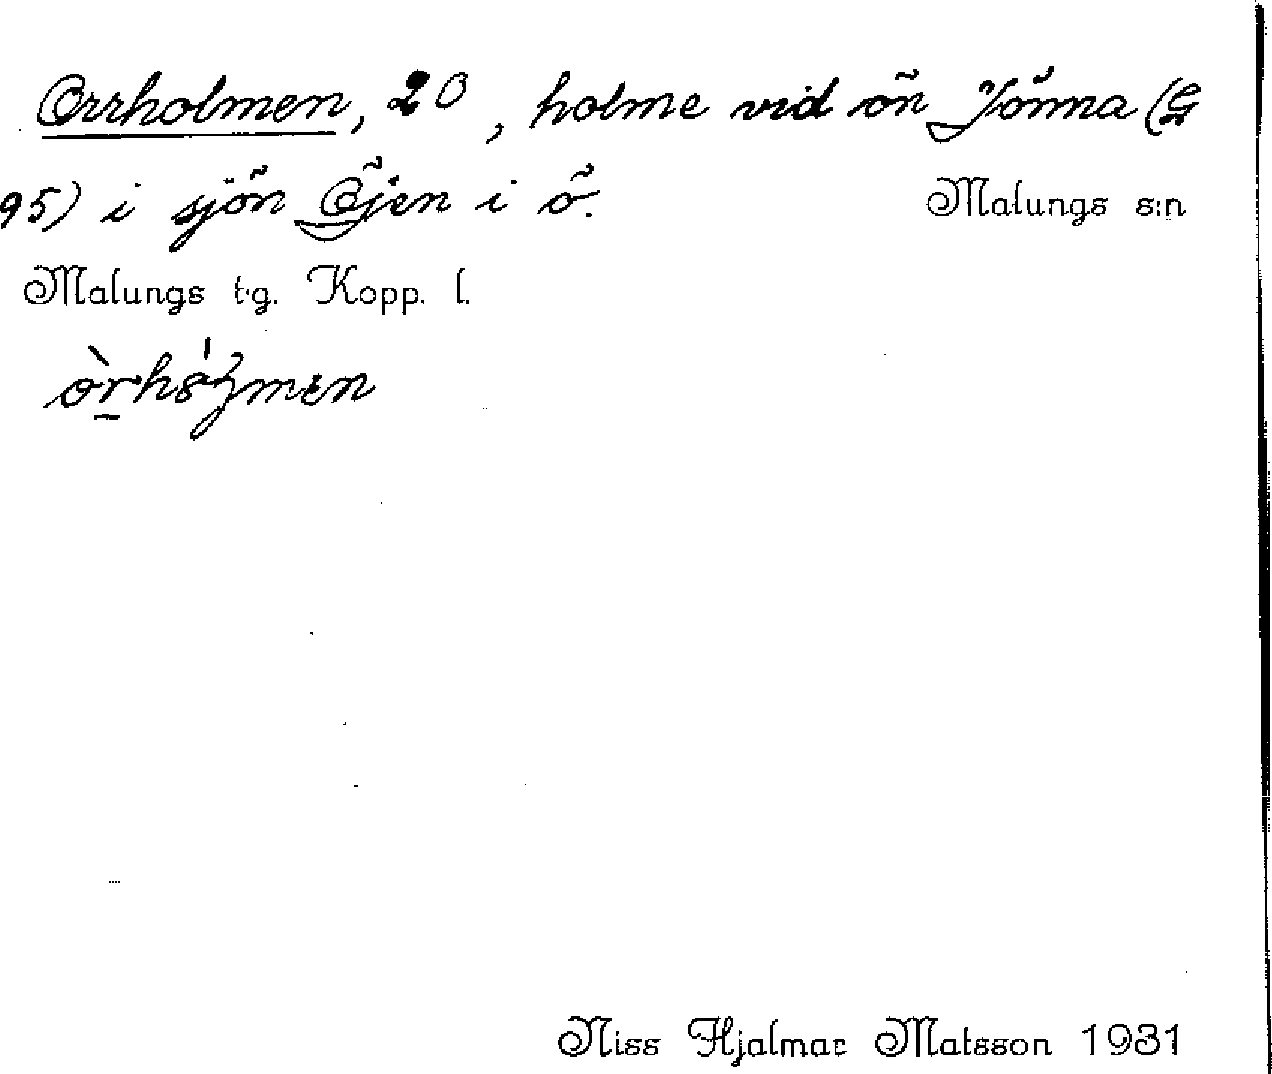 Orrholmen, 20, holme vid ön Jönna (G
95) i sjön Öjen i ö. Malungs s:n
Malungs t.g. Kopp. l.
Niss Hjalmar Matsson 1931